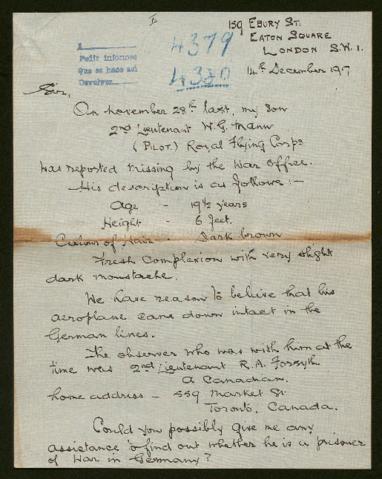 159 EBURY ST.
EATON SQUARE
LONDON S.W.1.
14th December 1917
A
Pedir informes
Que se hace así
Devolver
4379
4380
Sir,
On november 28th last, my son
2nd Lieutenant W.G. Mann
(PILOT) Royal Flying Corps
was reported missing by the War Office.
His description is as follows:-
Age - 19½ years
Height - 6 feet.
Colour of Hair - Dark brown
Fresh Complexion with very slight
dark moustache.
We have reason to believe that his
aeroplane came down intact in the
German lines.
The observer who was with him at the
time was 2nd Lieutenant R.A. Forsyth.
A Canadian.
home address - 559 Market St.
Toronto, Canada.
Could you possibly give me any
assistance to find out whether he is a prisoner
of War in Germany?